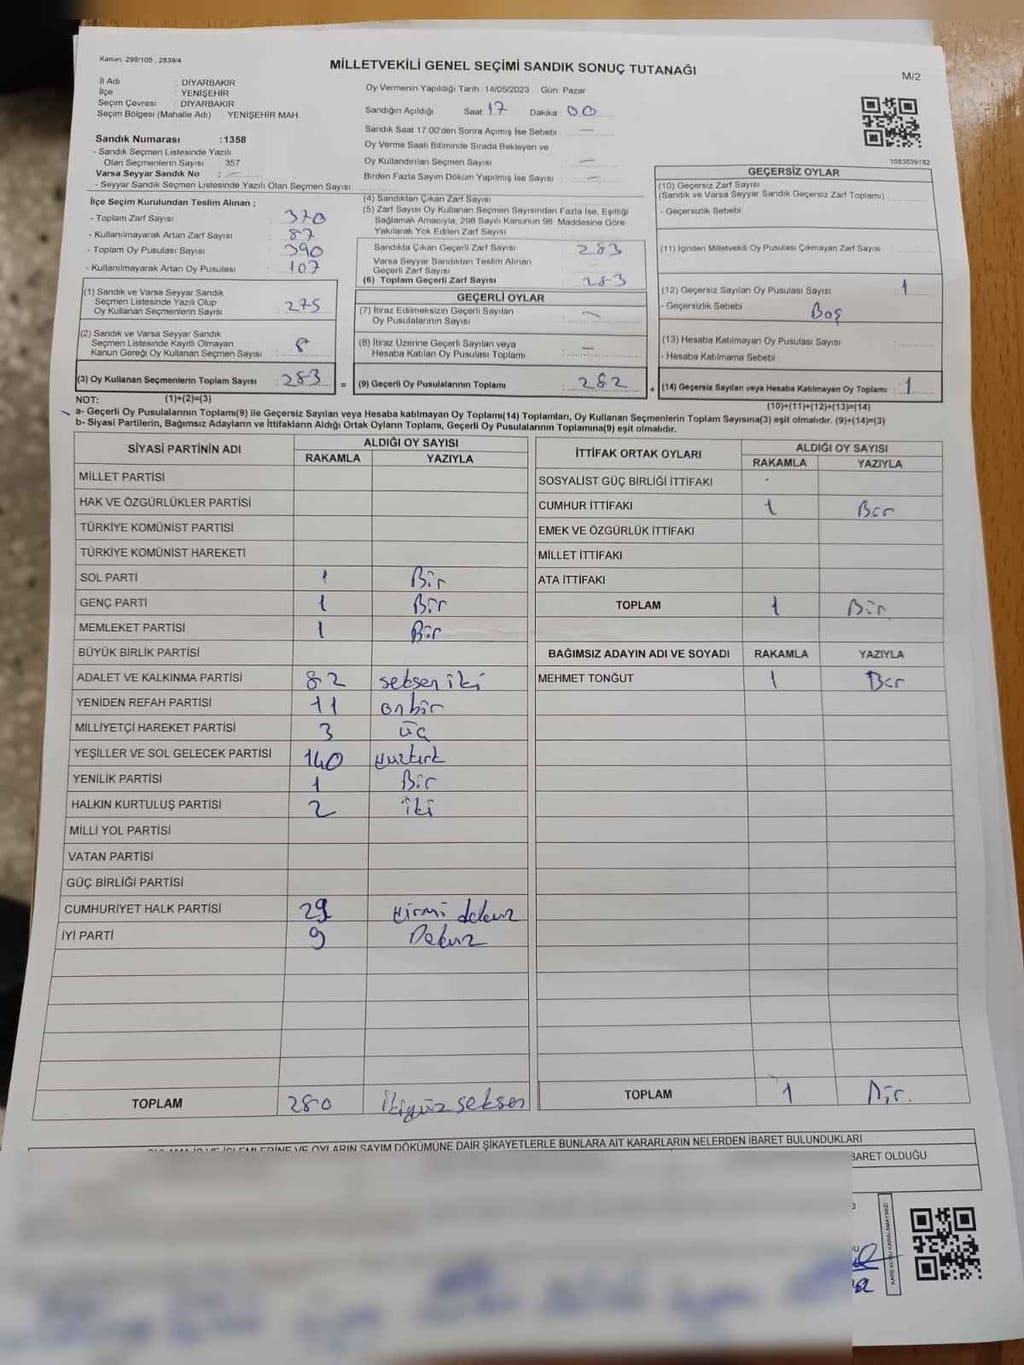 Kanun, 298/105 , 2839/4
MİLLETVEKİLİ GENEL SEÇİMİ SANDIK SONUÇ TUTANAĞI
M/2
İl Adı : DİYARBAKIR
İlçe : YENİŞEHİR
Seçim Çevresi : DİYARBAKIR
Seçim Bölgesi (Mahalle Adı) YENİŞEHİR MAH.
Sandık Numarası :1358
- Sandık Seçmen Listesinde Yazılı
Olan Seçmenlerin Sayısı 357
Varsa Seyyar Sandık No : —
- Seyyar Sandık Seçmen Listesinde Yazılı Olan Seçmen Sayısı:
Oy Vermenin Yapıldığı Tarih 14/05/2023 Gün: Pazar
Sandığın Açıldığı Saat: 17 Dakika: 00
Sandık Saat 17.00'den Sonra Açılmış İse Sebebi : —
Oy Verme Saati Bitiminde Sırada Bekleyen ve
Oy Kullandırılan Seçmen Sayısı : —
Birden Fazla Sayım Döküm Yapılmış İse Sayısı : —
1083839182
İlçe Seçim Kurulundan Teslim Alınan ;
- Toplam Zarf Sayısı : 370
- Kullanılmayarak Artan Zarf Sayısı : 87
- Toplam Oy Pusulası Sayısı : 390
- Kullanılmayarak Artan Oy Pusulası : 107
(1) Sandık ve Varsa Seyyar Sandık
Seçmen Listesinde Yazılı Olup
Oy Kullanan Seçmenlerin Sayısı : 275
(2) Sandık ve Varsa Seyyar Sandık
Seçmen Listesinde Kayıtlı Olmayan
Kanun Gereği Oy Kullanan Seçmen Sayısı : 8
(3) Oy Kullanan Seçmenlerin Toplam Sayısı : 283 =
(1)+(2)=(3)
(4) Sandıktan Çıkan Zarf Sayısı
(5) Zarf Sayısı Oy Kullanan Seçmen Sayısından Fazla İse, Eşitliği
Sağlamak Amacıyla, 298 Sayılı Kanunun 98. Maddesine Göre
Yakılarak Yok Edilen Zarf Sayısı
Sandıkta Çıkan Geçerli Zarf Sayısı : 283
Varsa Seyyar Sandıktan Teslim Alınan
Geçerli Zarf Sayısı
(6) Toplam Geçerli Zarf Sayısı : 283
GEÇERLİ OYLAR
(7) İtiraz Edilmeksizin Geçerli Sayılan
Oy Pusulalarının Sayısı : —
(8) İtiraz Üzerine Geçerli Sayılan veya
Hesaba Katılan Oy Pusulası Toplamı : —
(9) Geçerli Oy Pusulalarının Toplamı : 282 +
GEÇERSİZ OYLAR
(10) Geçersiz Zarf Sayısı
(Sandık ve Varsa Seyyar Sandık Geçersiz Zarf Toplamı)
- Geçersizlik Sebebi
(11) İçinden Milletvekili Oy Pusulası Çıkmayan Zarf Sayısı
(12) Geçersiz Sayılan Oy Pusulası Sayısı : 1
- Geçersizlik Sebebi : Boş
(13) Hesaba Katılmayan Oy Pusulası Sayısı
- Hesaba Katılmama Sebebi :
(14) Geçersiz Sayılan veya Hesaba Katılmayan Oy Toplamı : 1
(10)+(11)+(12)+(13)=(14)
NOT:
a- Geçerli Oy Pusulalarının Toplamı(9) ile Geçersiz Sayılan veya Hesaba katılmayan Oy Toplamı(14) Toplamları, Oy Kullanan Seçmenlerin Toplam Sayısına(3) eşit olmalıdır. (9)+(14)=(3)
b- Siyasi Partilerin, Bağımsız Adayların ve İttifakların Aldığı Ortak Oyların Toplamı, Geçerli Oy Pusulalarının Toplamına(9) eşit olmalıdır.
SİYASİ PARTİNİN ADI ALDIĞI OY SAYISI
RAKAMLA YAZIYLA
MİLLET PARTİSİ
HAK VE ÖZGÜRLÜKLER PARTİSİ
TÜRKİYE KOMÜNİST PARTİSİ
TÜRKİYE KOMÜNİST HAREKETİ
SOL PARTİ 1 Bir
GENÇ PARTİ 1 Bir
MEMLEKET PARTİSİ 1 Bir
BÜYÜK BİRLİK PARTİSİ
ADALET VE KALKINMA PARTİSİ 82 seksen iki
YENİDEN REFAH PARTİSİ 11 onbir
MİLLİYETÇİ HAREKET PARTİSİ 3 üç
YEŞİLLER VE SOL GELECEK PARTİSİ 140 yüzkırk
YENİLİK PARTİSİ 1 Bir
HALKIN KURTULUŞ PARTİSİ 2 iki
MİLLİ YOL PARTİSİ
VATAN PARTİSİ
GÜÇ BİRLİĞİ PARTİSİ
CUMHURİYET HALK PARTİSİ 29 yirmi dokuz
İYİ PARTİ 9 Dokuz
TOPLAM 280 İkiyüz seksen
İTTİFAK ORTAK OYLARI ALDIĞI OY SAYISI
RAKAMLA YAZIYLA
SOSYALİST GÜÇ BİRLİĞİ İTTİFAKI -
CUMHUR İTTİFAKI 1 Bir
EMEK VE ÖZGÜRLÜK İTTİFAKI
MİLLET İTTİFAKI
ATA İTTİFAKI
TOPLAM 1 Bir
BAĞIMSIZ ADAYIN ADI VE SOYADI RAKAMLA YAZIYLA
MEHMET TONĞUT 1 Bir
TOPLAM 1 Bir.
OYLARIN SAYIM DÖKÜMÜNE DAİR ŞİKAYETLERLE BUNLARA AİT KARARLARIN NELERDEN İBARET BULUNDUKLARI
BARET OLDUĞU
KARE KODU KARALAMAYINIZ!